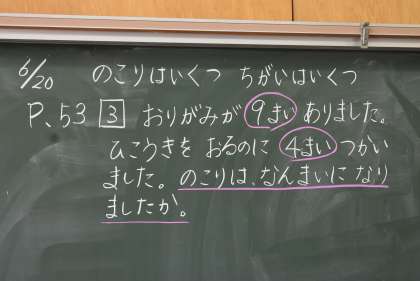 6/20 のこりはいくつ ちがいはいくつ
P.53 3 おりがみが 9まい ありました。
ひこうきを おるのに 4まい つかい
ました。のこりは、なんまいに なり
ましたか。